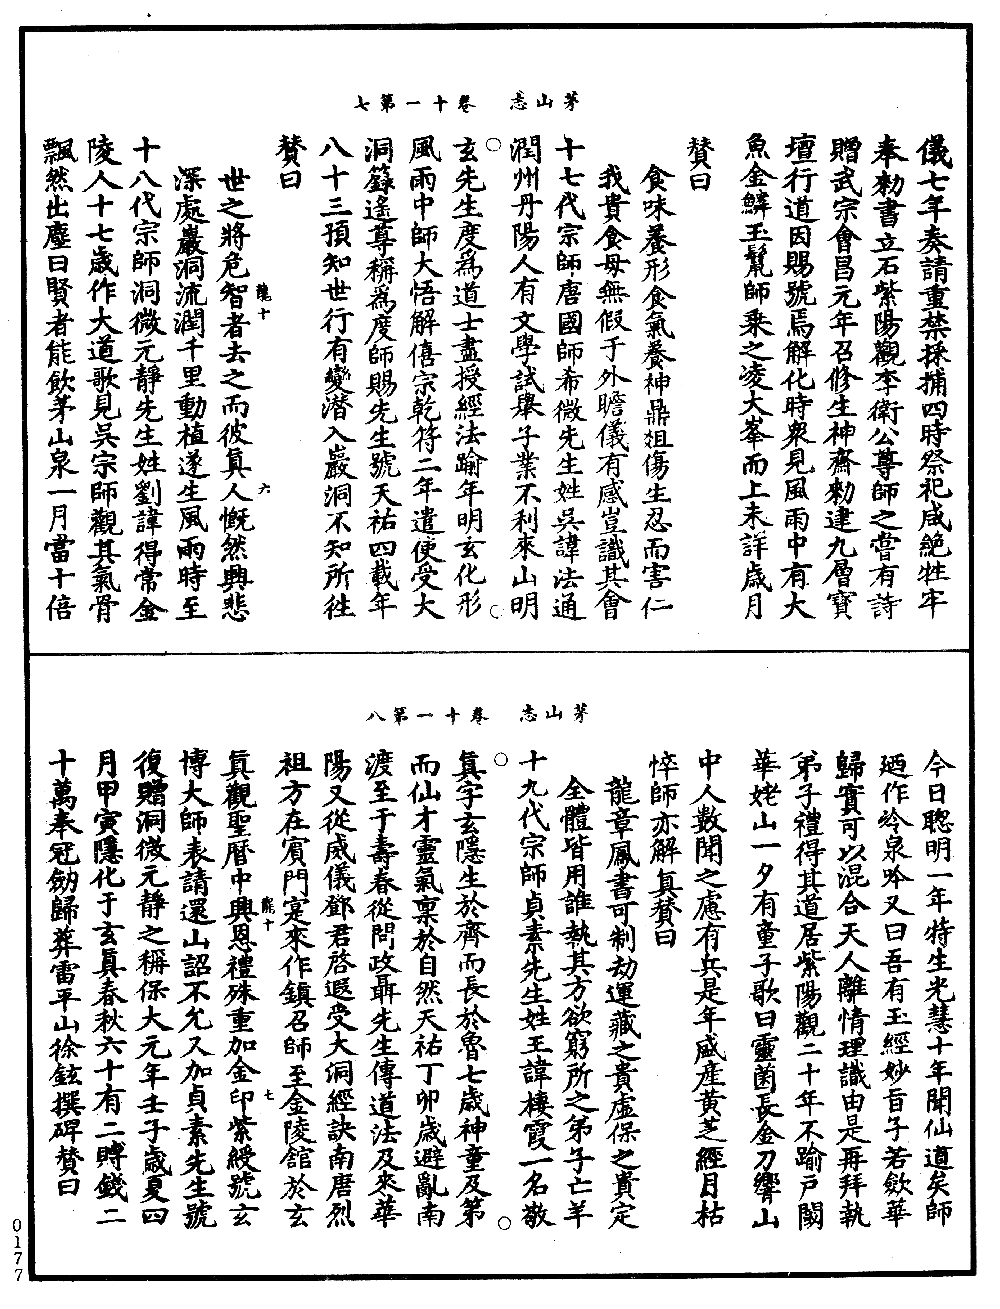 茅山志　卷十一第七
儀七年奏請重禁採捕四時祭祀咸絶牲牢
奉勑書立石紫陽觀李衛公尊師之嘗有詩
贈武宗會昌元年召修生神齋勑建九層寶
壇行道因賜號焉解化時衆見風雨中有大
魚金鱗玉鬣師乘之凌大峯而上未詳歲月
贊曰
食味養形食氣養神鼎俎傷生忍而害仁
我貴食母無假于外瞻儀有感豈識其會
十七代宗師唐國師希微先生姓吳諱法通
潤州丹陽人有文學試舉子業不利來山明
玄先生度爲道士盡授經法踰年明玄化形
風雨中師大悟解僖宗乾符二年遣使受大
洞籙遙尊稱爲度師賜先生號天祐四載年
八十三預知世行有變潛入巖洞不知所往
贊曰
世之將危智者去之而彼真人慨然興悲
深處巖洞流潤千里動植遂生風雨時至
龍十　六
十八代宗師洞微元靜先生姓劉諱得常金
陵人十七歲作大道歌見吳宗師觀其氣骨
飄然出塵曰賢者能飲茅山泉一月當十倍
茅山志　卷十一第八
今日聰明一年特生光慧十年聞仙道矣師
廼作吟泉吟又曰吾有玉經妙旨子若斂華
歸實可以混合天人離情理識由是再拜執
弟子禮得其道居紫陽觀二十年不踰戶閾
華姥山一夕有童子歌曰靈菌長金刀響山
中人數聞之慮有兵是年盛產黃芝經月枯
悴師亦解真贊曰
龍章鳳書可制劫運藏之貴虛保之貴定
全體皆用誰執其方欲窮所之弟子亡羊
十九代宗師貞素先生姓王諱棲霞一名敬
真字玄隱生於齊而長於魯七歲神童及第
而仙才靈氣稟於自然天祐丁卯歲避亂南
渡至于壽春從問政聶先生傳道法及來華
陽又從威儀鄧君啓遐受大洞經訣南唐烈
祖方在賓門寔來作鎮召師至金陵館於玄
真觀聖曆中興恩禮殊重加金印紫綬號玄
龍十　七
博大師表請還山詔不允又加貞素先生號
復贈洞微元靜之稱保大元年壬子歲夏四
月甲寅隱化于玄真春秋六十有二賻錢二
十萬奉冠劒歸葬雷平山徐鉉撰碑贊曰
0177